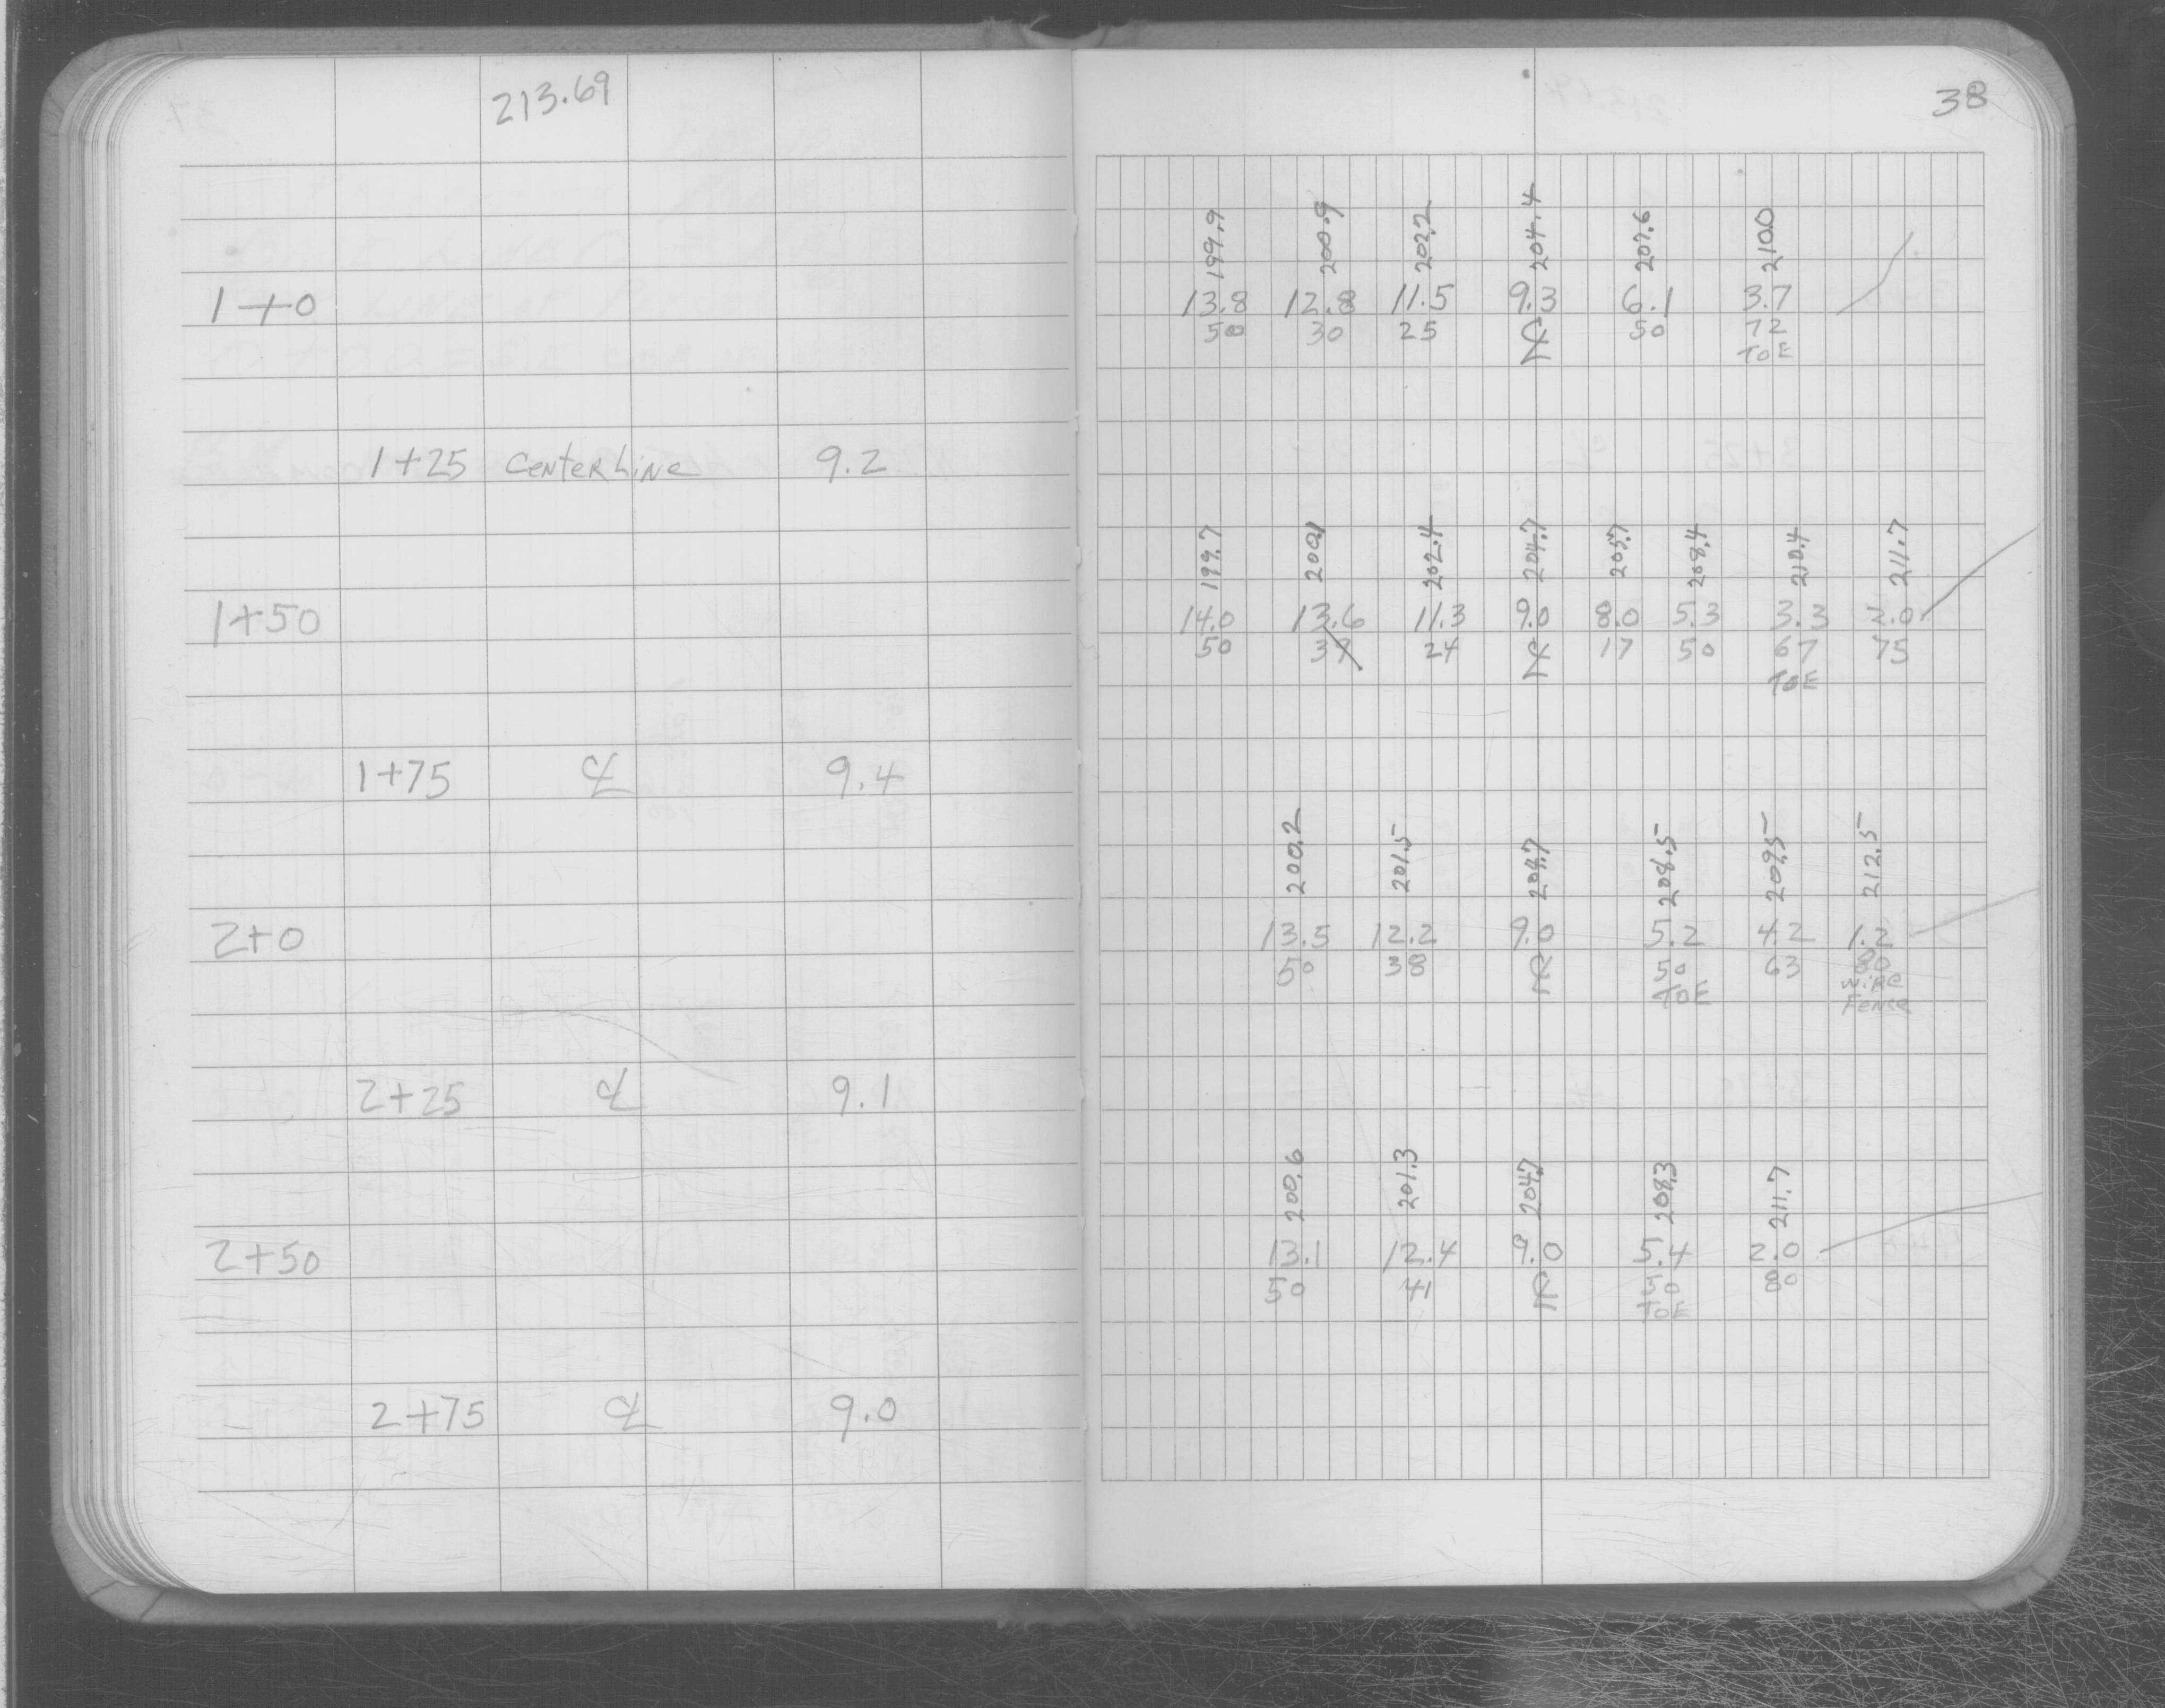 213.69
38
199.9 200.9 202.2 204.4 207.6 210.0
1+0 13.8 12.8 11.5 9.3 6.1 3.7
50 30 25 ℄ 50 72
TOE
1+25 Centerline 9.2
199.7 200.1 202.4 204.7 205.7 208.4 210.4 211.7
1+50 14.0 13.6 11.3 9.0 8.0 5.3 3.3 2.0
50 39 24 ℄ 17 50 67 75
TOE
1+75 ℄ 9.4
200.2 201.5 204.7 208.5 209.5 212.5
2+0 13.5 12.2 9.0 5.2 4.2 1.2
50 38 ℄ 50 63 80
TOE Wire
Fence
2+25 ℄ 9.1
200.6 201.3 204.7 208.3 211.7
2+50 13.1 12.4 9.0 5.4 2.0
50 41 ℄ 50 80
TOE
2+75 ℄ 9.0